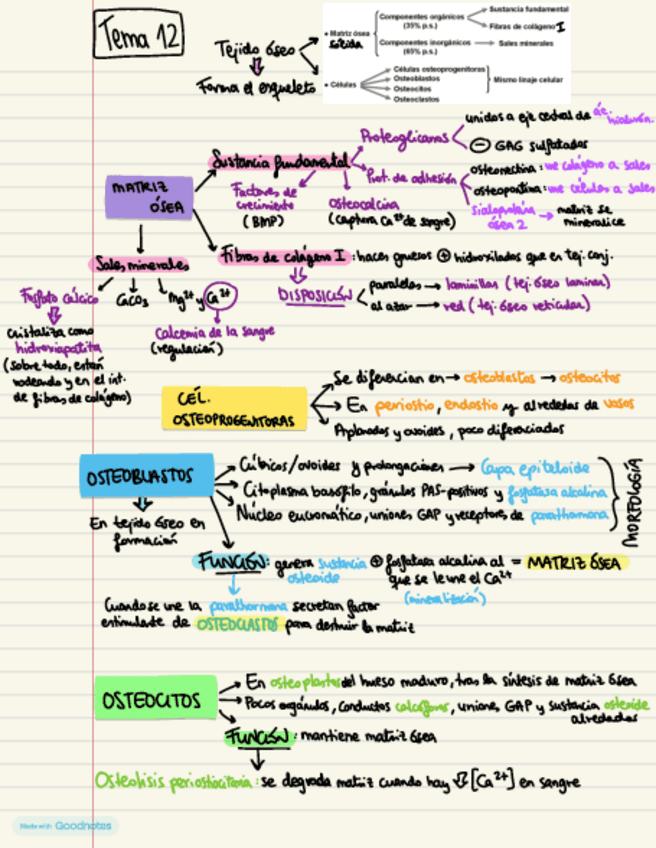 Tema 12
Tejido óseo
Forma el esqueleto
• Matriz ósea
sólida
Componentes orgánicos
(35% p.s.)
Sustancia fundamental
Fibras de colágeno I
Componentes inorgánicos
(65% p.s.)
Sales minerales
• Células
Células osteoprogenitoras
Osteoblastos
Osteocitos
Osteoclastos
Mismo linaje celular
MATRIZ
ÓSEA
Sustancia fundamental
Proteoglicanos
unidos a eje central de ác.
hialurón.
GAG sulfatados
Prot. de adhesión
osteonectina: une colágeno a sales
osteopontina: une células a sales
Sialoproteína
ósea 2 → matriz se
mineralice
Factores de
crecimiento
(BMP)
Osteocalcina
(captura Ca²⁺ de sangre)
Fibras de colágeno I: haces gruesos ⊕ hidroxilados que en tej. conj.
DISPOSICIÓN
paralelas → laminillas (tej. óseo laminar)
al azar → red (tej. óseo reticular)
Sales minerales
Fosfato cálcico
CaCO₃
Mg²⁺ y Ca²⁺
Calcemia de la sangre
(regulación)
cristaliza como
hidroxiapatita
(sobre todo, están
rodeando y en el int.
de fibras de colágeno)
CÉL.
OSTEOPROGENITORAS
Se diferencian en → osteoblastos → osteocitos
En periostio, endostio y alrededor de vasos
Aplanados y ovoides, poco diferenciados
OSTEOBLASTOS
En tejido óseo en
formación
Cúbicos/ovoides y prolongaciones → Capa epitelioide
Citoplasma basófilo, gránulos PAS-positivos y fosfatasa alcalina
Núcleo eucromático, uniones GAP y receptores de parathormona
MORFOLOGÍA
FUNCIÓN: genera sustancia ⊕ fosfatasa alcalina al = MATRIZ ÓSEA
osteoide que se le une el Ca²⁺
(mineralización)
Cuando se une la parathormona secretan factor
estimulante de OSTEOCLASTOS para destruir la matriz
OSTEOCITOS
En osteoplastos del hueso maduro, tras la síntesis de matriz ósea
Pocos orgánulos, conductos calcóforos, uniones GAP y sustancia osteoide
alrededor
FUNCIÓN: mantiene matriz ósea
Osteolisis periostiocitaria: se degrada matriz cuando hay ⇩ [Ca²⁺] en sangre
Made with Goodnotes